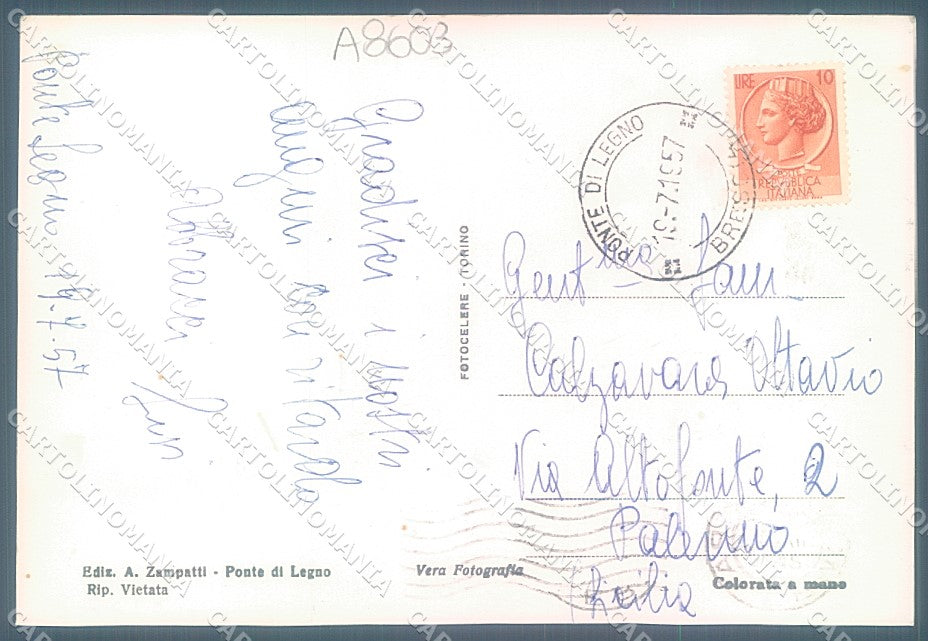 A8603
Ponte Legno 19.7.57
Gradisci i nostri
auguri con ritardo
Abbracci
LIRE 10
POSTE
REPUBBLICA
ITALIANA
PONTE DI LEGNO
19-7.1957
BRESCIA
FOTOCELERE - TORINO
Gent.ma Fam.
Calzavara Ottavio
Via Altofonte, 2
Palermo
Sicilia
Ediz. A. Zampatti - Ponte di Legno
Rip. Vietata
Vera Fotografia
Colorata a mano
CARTOLINOMANTA